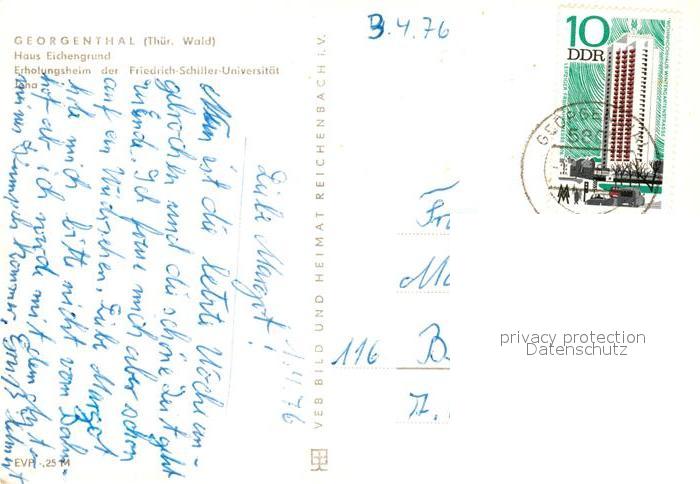 GEORGENTHAL (Thür. Wald)
Haus Eichengrund
Erholungsheim der Friedrich-Schiller-Universität
Jena
Liebe Margot!
1.4.76
Nun ist die letzte Woche an-
gebrochen und die schöne Zeit geht
zu Ende. Ich freue mich aber schon
auf ein Wiedersehen. Liebe Margot
hole mich bitte nicht vom Bahn-
hof ab ich werde mit dem
kommen, Gruß Helmut
EVP -,25 M
VEB BILD UND HEIMAT REICHENBACH i. V.
3.4.76
10
DDR
WOHNHOCHHAUS WINTERGARTENSTRASSE
LEIPZIGER
GEORGEN
Fr
Ma
116 B
privacy protection
Datenschutz